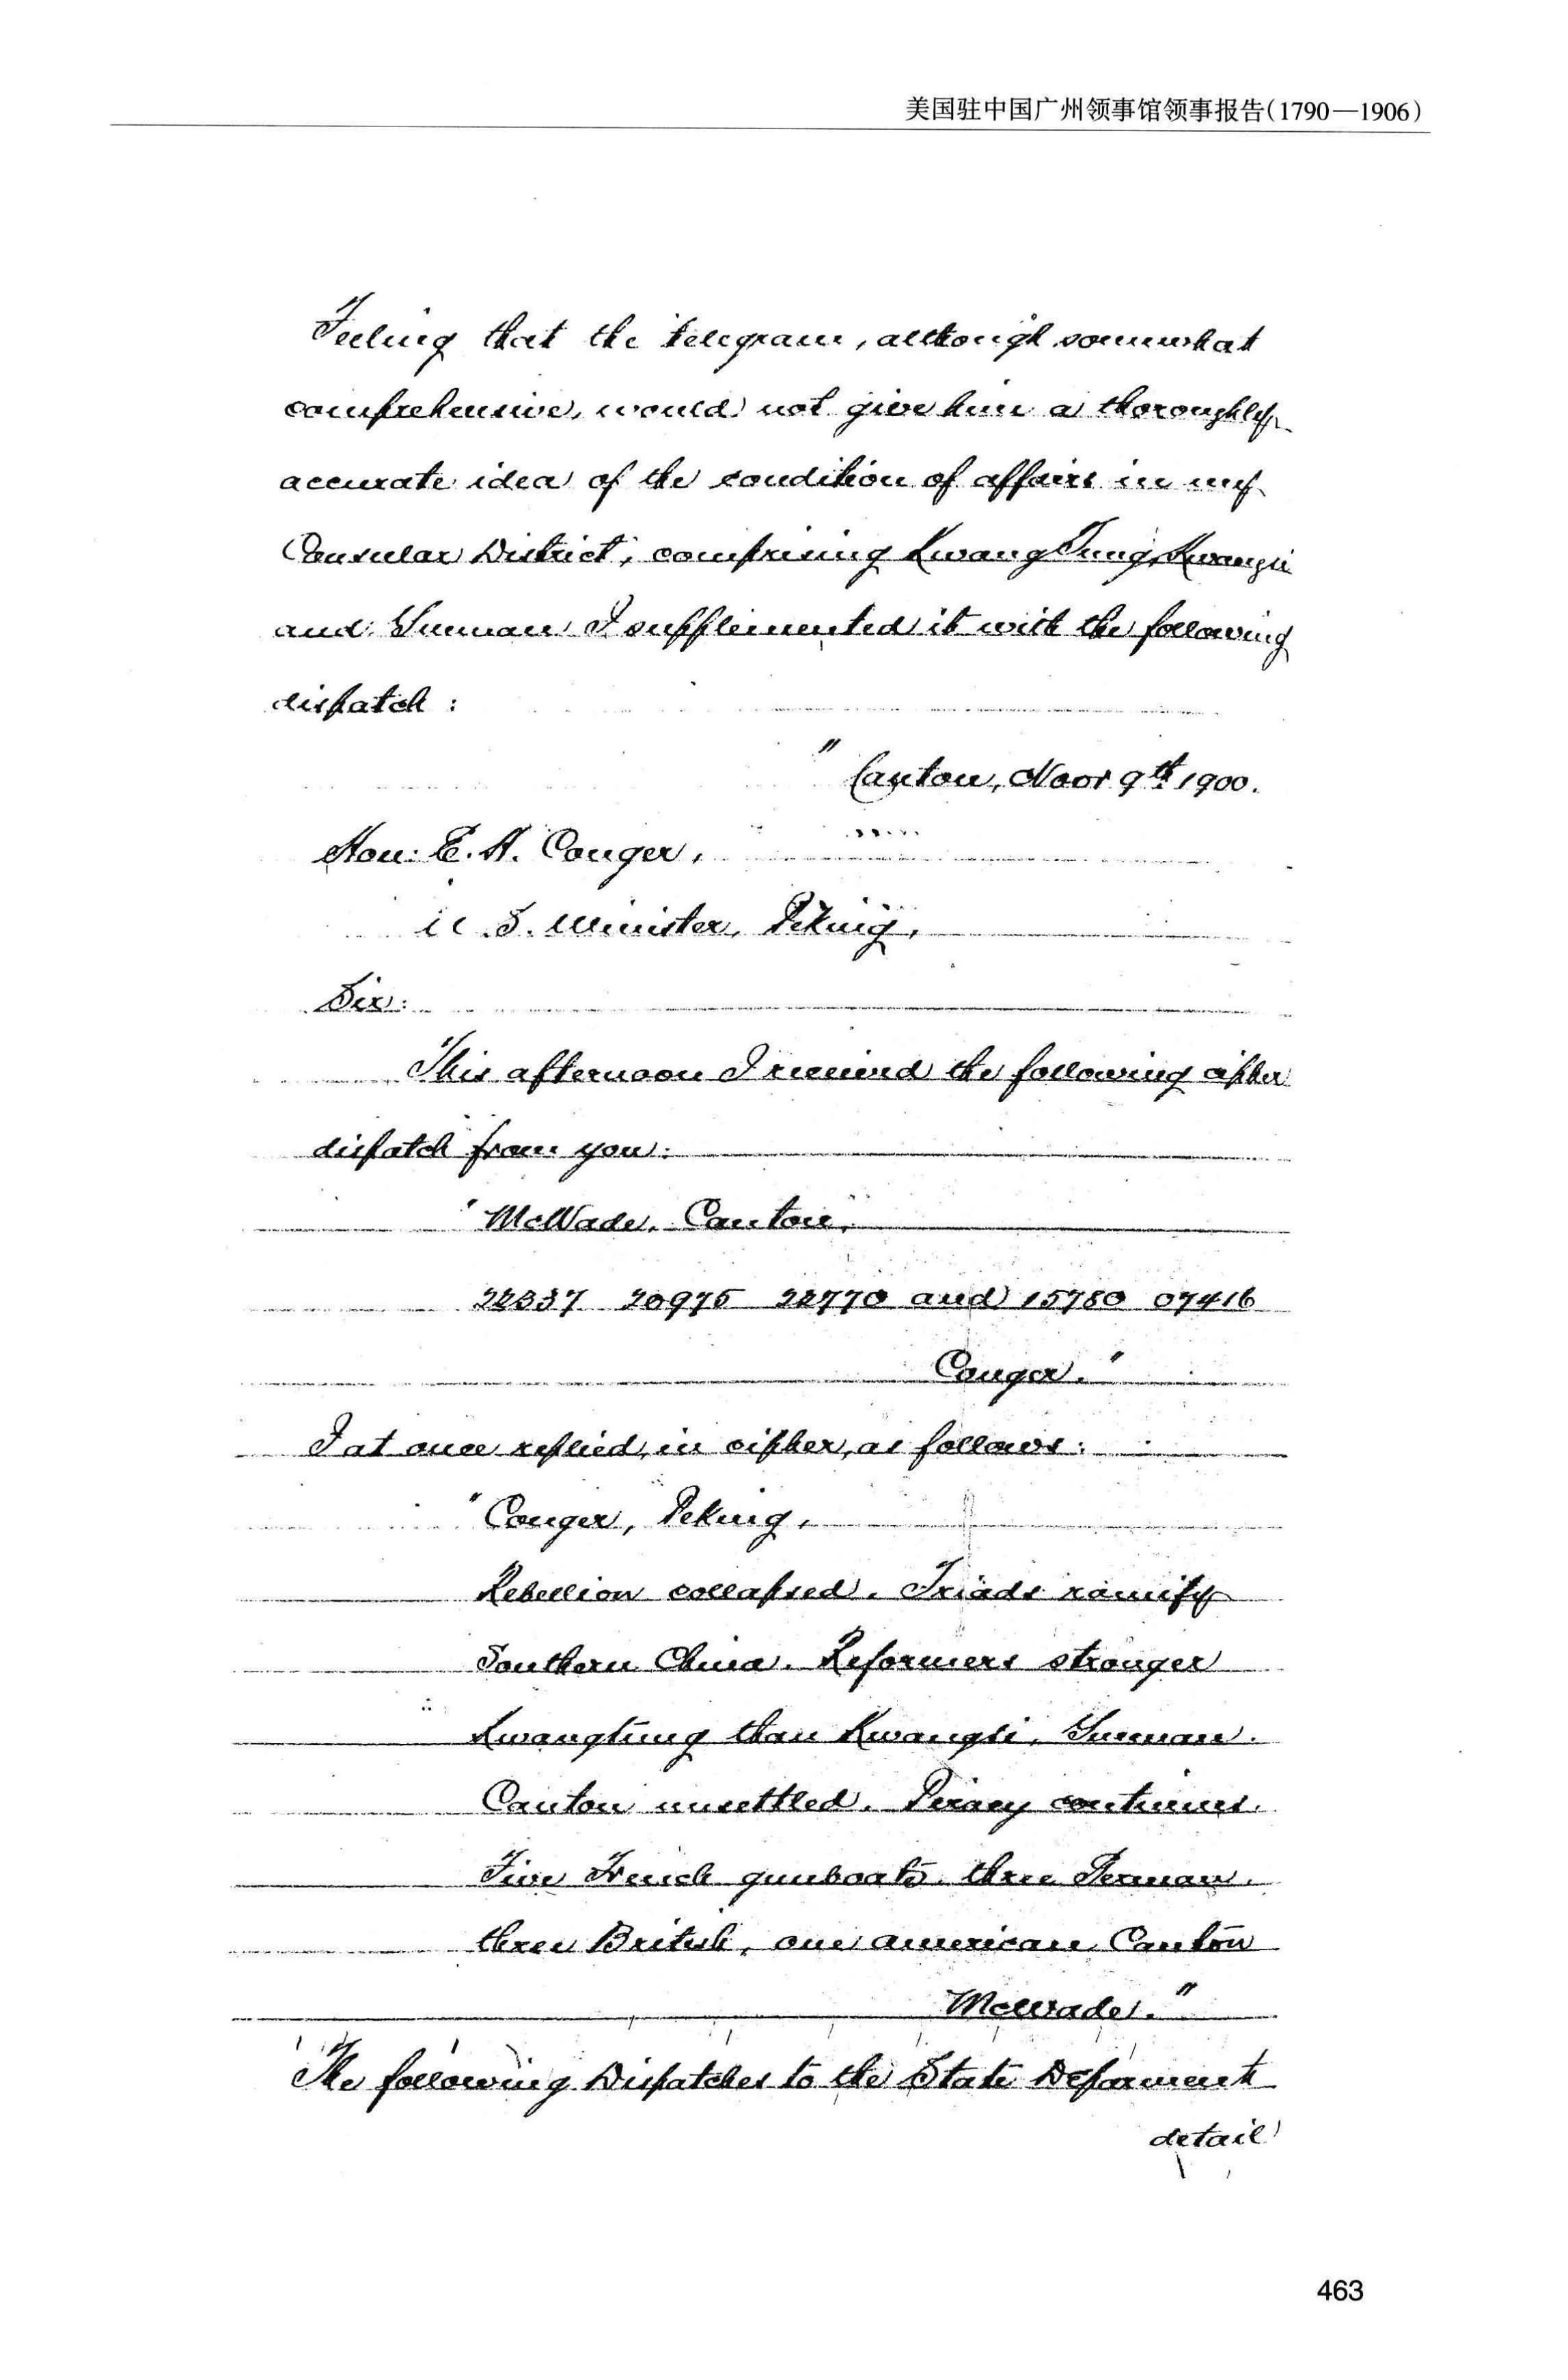 美国驻中国广州领事馆领事报告(1790—1906)
Feeling that the telegram, although somewhat
comprehensive, would not give him a thoroughly
accurate idea of the condition of affairs in my
Consular District, comprising Kwang Tung, Kwangsi
and Yunnan I supplemented it with the following
dispatch :
" Canton, Novr 9th 1900.
Hon: E. H. Conger,
U. S. Minister, Peking,
Sir:
This afternoon I received the following cipher
dispatch from you:
"McWade, Canton,
22337 20975 22770 and 15780 07416
Conger."
I at once replied, in cipher, as follows:
"Conger, Peking,
Rebellion collapsed. Triads ramify
Southern China. Reformers stronger
Kwangtung than Kwangsi, Yunnan.
Canton unsettled. Piracy continues.
Five French gunboats, three German,
three British, one American Canton
McWade."
The following Dispatches to the State Deparment
detail
463